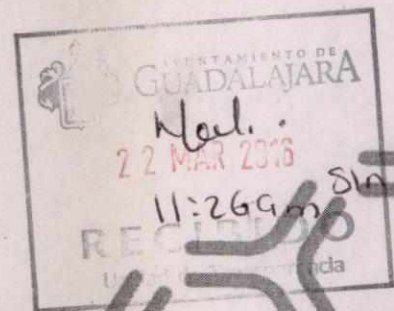 AYUNTAMIENTO DE
GUADALAJARA
22 MAR 2016
11:26am
RECIBIDO